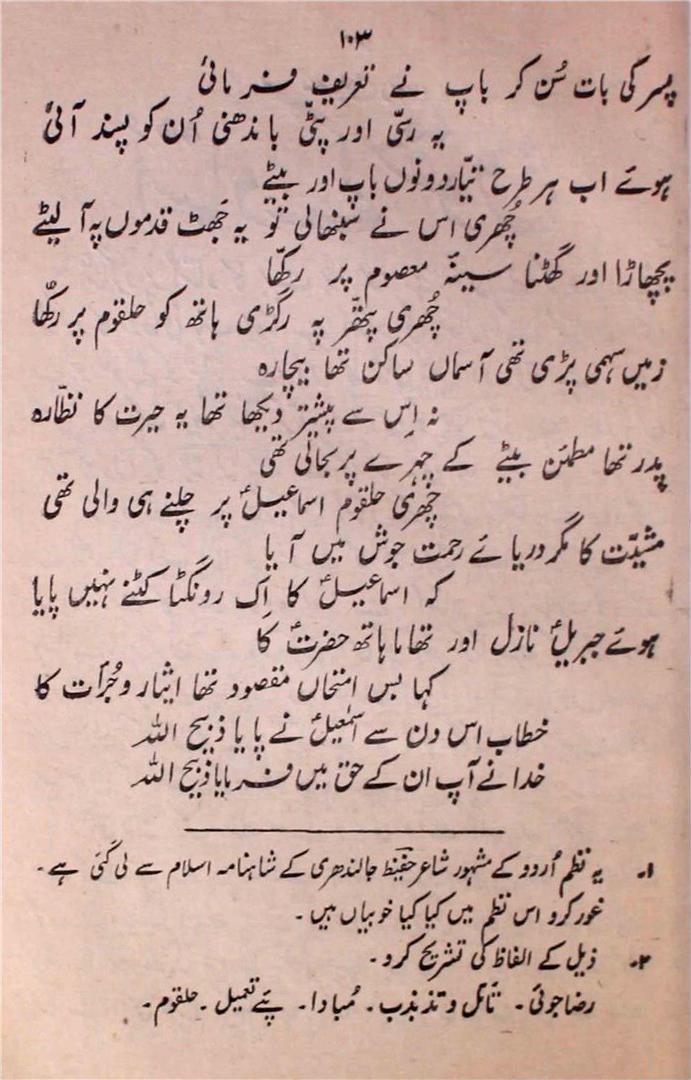 ۱۰۳
پسر کی بات سُن کر باپ نے تعریف فرمائی
یہ رسّی اور پٹّی باندھنی اُن کو پسند آئی
ہوئے اب ہر طرح تیّار دونوں باپ اور بیٹے
چُھری اس نے سنبھالی تو یہ جَھٹ قدموں پہ آ لیٹے
پچھاڑا اور گھٹنا سینۂ معصوم پر رکھّا
چُھری پتھّر پہ رگڑی ہاتھ کو حلقوم پر رکھّا
زمیں سہمی پڑی تھی آسماں ساکن تھا بیچارہ
نہ اِس سے پیشتر دیکھا تھا یہ حیرت کا نظّارہ
پدر تھا مطمئن بیٹے کے چہرے پر بحالی تھی
چُھری حلقوم اسماعیلؑ پر چلنے ہی والی تھی
مشیّت کا مگر دریائے رحمت جوش میں آیا
کہ اسماعیلؑ کا اِک رونگٹا کٹنے نہیں پایا
ہوئے جبریلؑ نازل اور تھاما ہاتھ حضرتؑ کا
کہا بس امتحاں مقصود تھا ایثار و جُرأت کا
خطاب اس دن سے اسمٰعیلؑ نے پایا ذبیح اللہ
خدا نے آپ ان کے حق میں فرمایا ذبیح اللہ
۱۔ یہ نظم اُردو کے مشہور شاعر حفیظؔ جالندھری کے شاہنامہ اسلام سے لی گئی ہے۔
غور کرو اس نظم میں کیا کیا خوبیاں ہیں۔
۲۔ ذیل کے الفاظ کی تشریح کرو۔
رضا جوئی۔ تأمل و تذبذب۔ مُبادا۔ پئے تعمیل۔ حلقوم۔